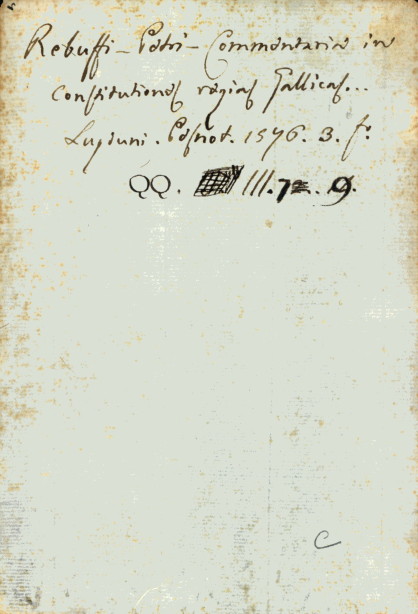 Rebuffi - Petri - Commentaria in
Constitutiones regias Gallicas...
Lugduni. 1576. 3. f.º
QQ. III. 72. 9.
C